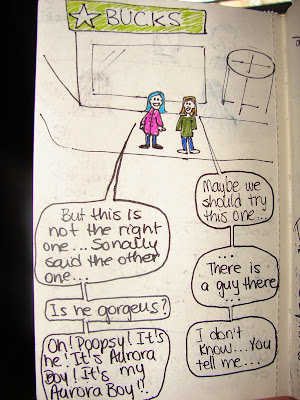 BUCKS
Maybe we
should try
this one...
But this is
not the right
one... Sonally
said the other
one...
...
There is
a guy there
...
Is he gorgeus?
I don't
know... You
tell me...
Oh! Poopsy! It's
he! It's Aurora
Boy! It's my
Aurora Boy!!